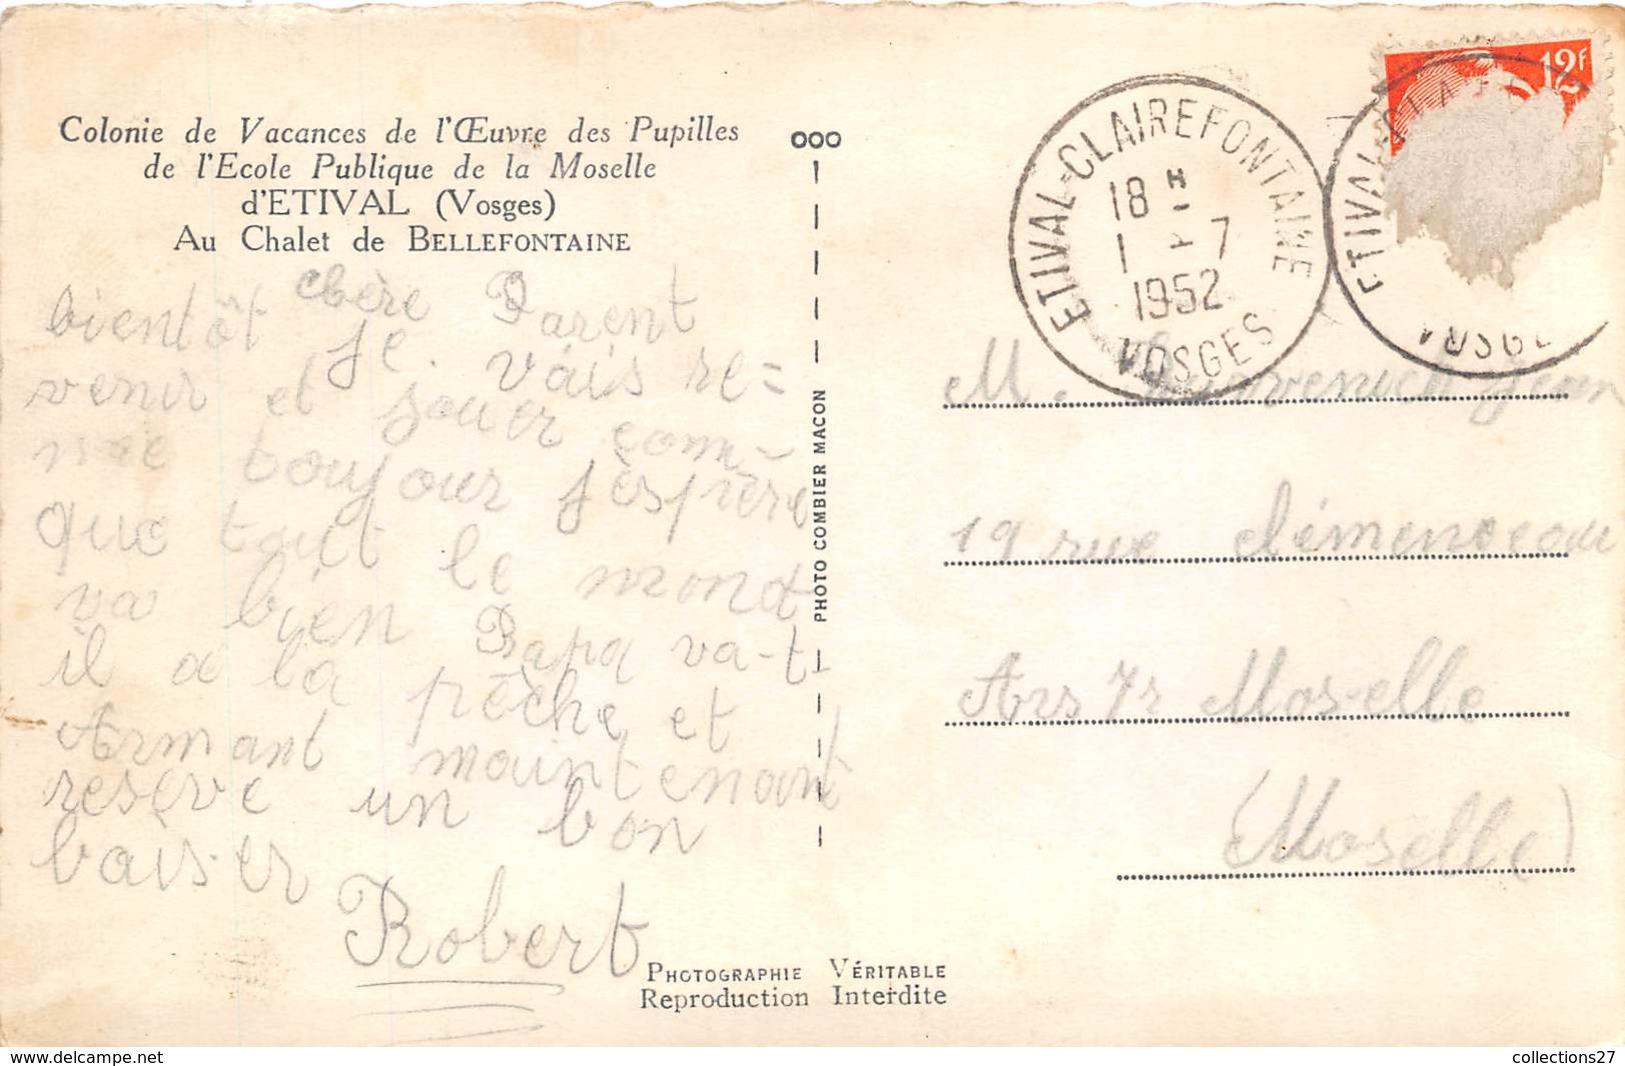 Colonie de Vacances de l'Œuvre des Pupilles
de l'Ecole Publique de la Moselle
d'ETIVAL (Vosges)
Au Chalet de BELLEFONTAINE
chère Parent
bientôt je vais re=
venir et jouer com-
me toujour j'espère
que tout le mond
va bien Papa va-t-
il a la pêche et
Armant maintenant
reserve un bon
baiser
Robert
PHOTO COMBIER MACON
PHOTOGRAPHIE VÉRITABLE
Reproduction Interdite
12f
ETIVAL-CLAIREFONTAINE
18 H
1 - 7
1952
VOSGES
ETIVAL
M. Jean
19 rue Clémenceau
Ars /r Moselle
(Moselle)
collections27